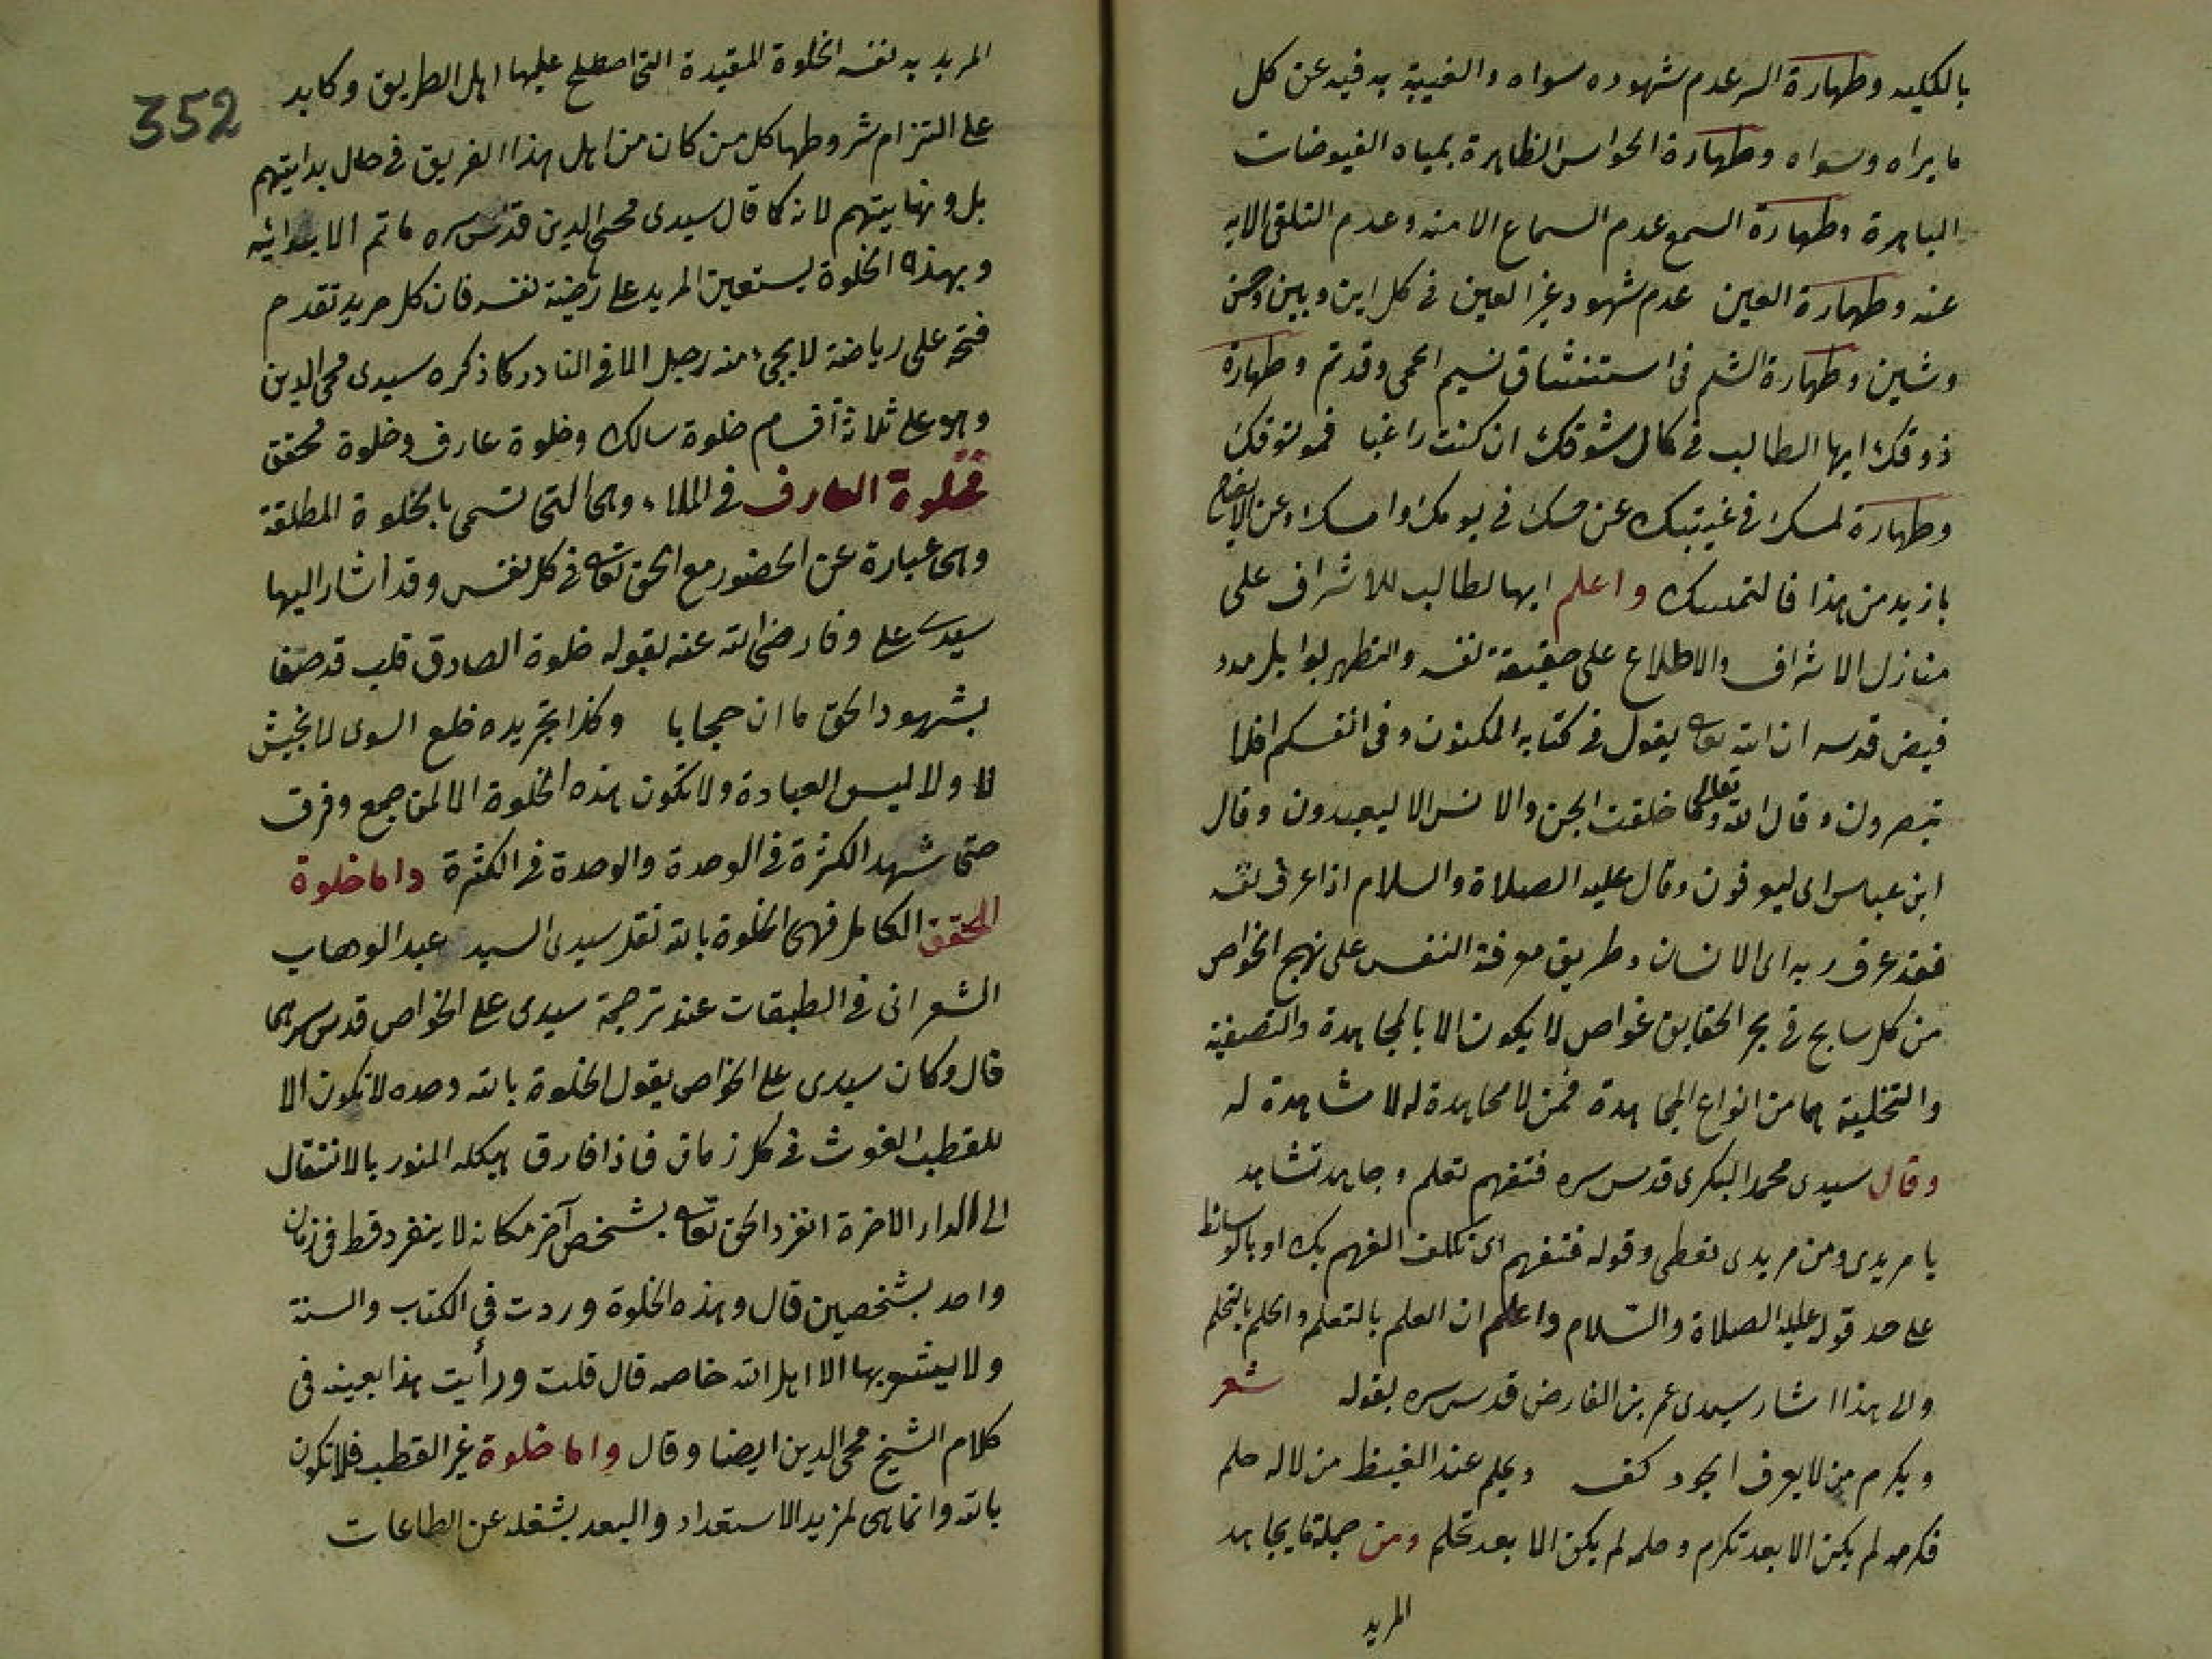 بالكليه وطهارة السر عدم شهوده سواه والغيبة به فيه عن كل
ما يراه وسواه وطهارة الحواس الظاهرة بمياه الفيوضات
الباهرة وطهارة السمع عدم السماع الا منه وعدم التلقى الا به
عنه وطهارة العين عدم شهود غير العين فى كل اين وبين
وشين وطهارة الشم فى استنشاق نسيم الحمى وقد تم وطهارة
ذوقك ايها الطالب فى كمال شوقك ان كنت راغبا
وطهارة لمسك فى غيبتك عن مسك فى يومك وامسك وعن
بازيد من هذا فالتمسك واعلم ايها الطالب للاشراف على
منازل الاشراف والاطلاع على حقيقة نفسه والتطهر بوابل مدد
فيض قدسه ان الله تعالى يقول فى كتابه المكنون وفى انفسكم افلا
تبصرون وقال الله تعالى وما خلقت الجن والانس الا ليعبدون وقال
ابن عباس اى ليعرفون وقال عليه الصلاة والسلام اذا عرف نفسه
فقد عرف ربه اى الانسان وطريق معرفة النفس على نهج الخواص
من كل سابح فى بحر الحقايق غواص لا يكون الا بالمجاهدة والتصفية
والتخلية هما من انواع المجاهدة فمن لا مجاهدة له لا مشاهدة له
وقال سيدى محمد البكرى قدس سره فتفهم تعلم وجاهد تشاهد
يا مريدى ومن مريدى تعطى وقوله فتفهم اى تكلف الفهم بك او بالوسائط
على حد قوله عليه الصلاة والسلام واعلم ان العلم بالتعلم والحلم بالتحلم
والى هذا اشار سيدى عمر بن الفارض قدس سره بقوله شعر
ويكرم من لا يعرف الجود كفه ويحلم عند الغيظ من لا له حلم
فكرمه لم يكن الا بعد تكرم وحلمه لم يكن الا بعد تحلم ومن جملة ما يجاهد
المريد
352
المريد به نفسه الخلوة المقيدة التى اصطلح عليها اهل الطريق وكابد
على التزام شروطها كل من كان من اهل هذا الفريق فى حال بدايتهم
بل ونهايتهم لانه كما قال سيدى محيى الدين قدس سره ما تم الا بدائيه
وبهذه الخلوة يستعين المريد على رياضة نفسه فان كل مريد تقدم
فتحه على رياضة لا يجىء منه رجل الا فى النادر كما ذكره سيدى محى الدين
وهو على ثلاثة أقسام خلوة سالك وخلوة عارف وخلوة محقق
فخلوة العارف فى الملاء وهى التى تسمى بالخلوة المطلقة
وهى عبارة عن الحضور مع الحق تعالى فى كل نفس وقد أشار اليها
سيدى على وفا رضى الله عنه بقوله خلوة الصادق قلب قد صفا
بشهود الحق ما ان حجابا وكذا تجريده خلع السوى
لا ولا لبس العباءة ولا تكون هذه الخلوة الا لمن جمع وفرق
حتى شهد الكثرة فى الوحدة والوحدة فى الكثرة واما خلوة
المحقق الكامل فهى الخلوة بالله نقل سيدى السيد عبد الوهاب
الشعرانى فى الطبقات عند ترجمة سيدى على الخواص قدس سرهما
قال وكان سيدى على الخواص يقول الخلوة بالله وحده لا تكون الا
للقطب الغوث فى كل زمان فاذا فارق هيكله المنور بالانتقال
الى الدار الاخرة انفرد الحق تعالى بشخص آخر مكانه لا ينفرد قط فى زمان
واحد بشخصين قال وهذه الخلوة وردت فى الكتاب والسنة
ولا يشعر بها الا اهل الله خاصه قال قلت ورأيت هذا بعينه فى
كلام الشيخ محى الدين ايضا وقال واما خلوة غير القطب فلا تكون
بالله وانما هى لمزيد الاستعداد والبعد بشغله عن الطاعات